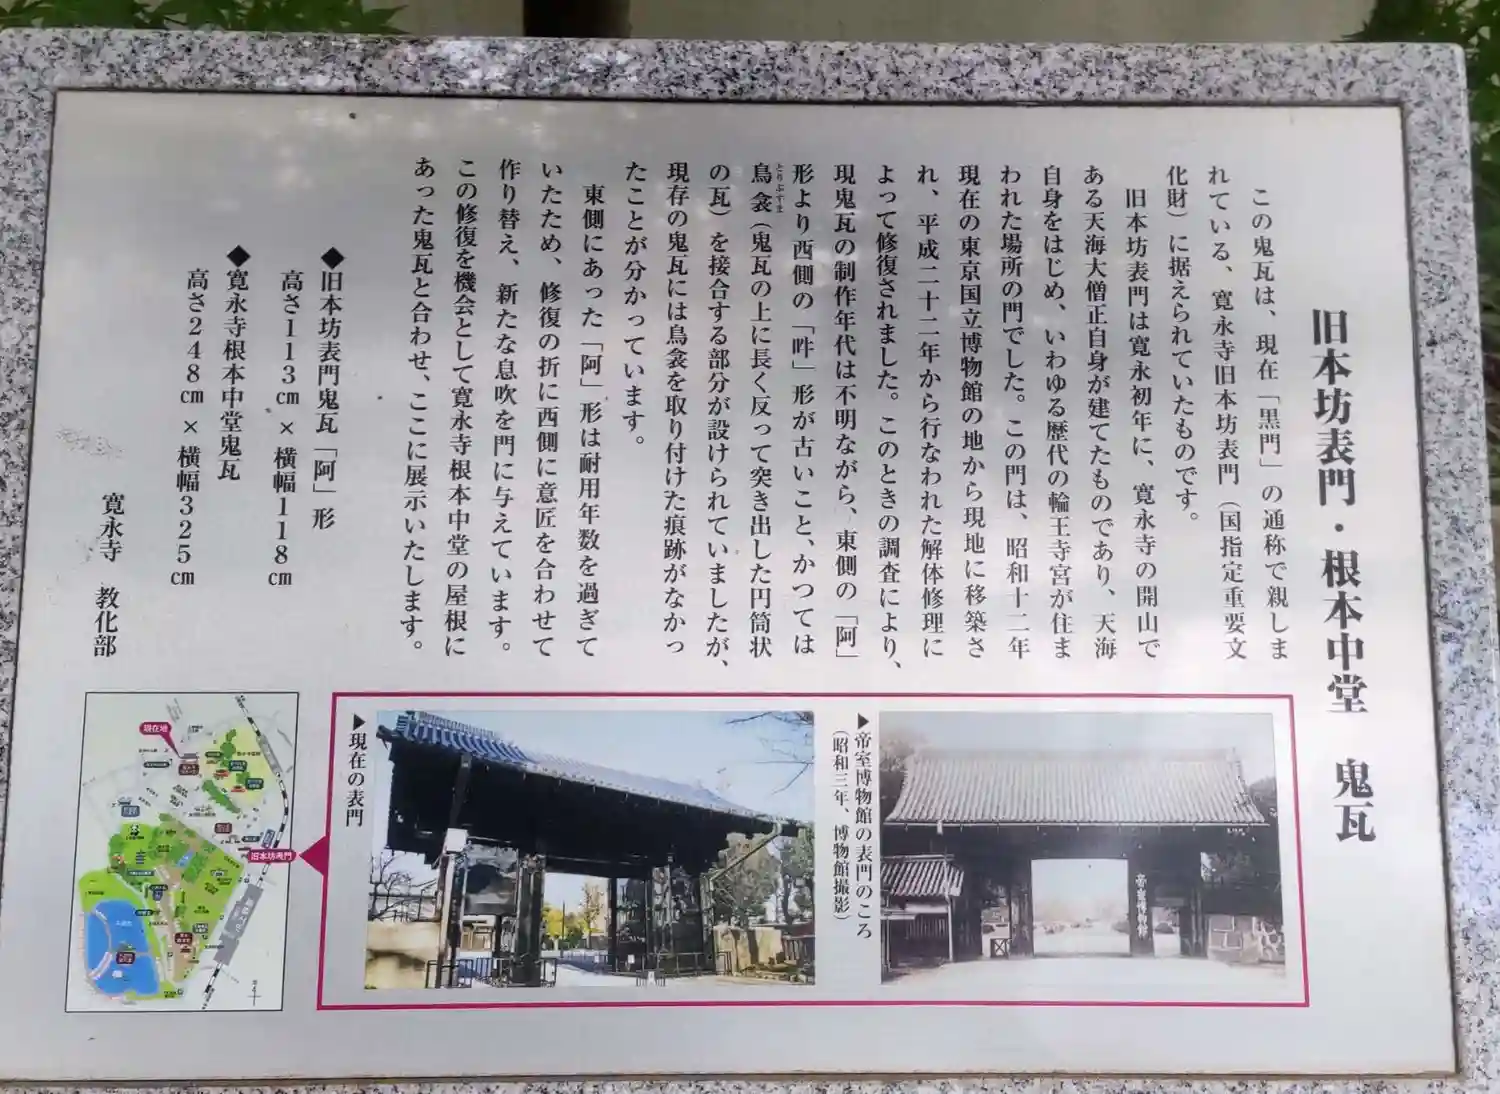 旧本坊表門・根本中堂　鬼瓦
この鬼瓦は、現在「黒門」の通称で親しま
れている、寛永寺旧本坊表門（国指定重要文
化財）に据えられていたものです。
旧本坊表門は寛永初年に、寛永寺の開山で
ある天海大僧正自身が建てたものであり、天海
自身をはじめ、いわゆる歴代の輪王寺宮が住ま
われた場所の門でした。この門は、昭和十二年
現在の東京国立博物館の地から現地に移築さ
れ、平成二十二年から行なわれた解体修理に
よって修復されました。このときの調査により、
現鬼瓦の制作年代は不明ながら、東側の「阿」
形より西側の「吽」形が古いこと、かつては
鳥衾（鬼瓦の上に長く反って突き出した円筒状
とりぶすま
の瓦）を接合する部分が設けられていましたが、
現存の鬼瓦には鳥衾を取り付けた痕跡がなかっ
たことが分かっています。
東側にあった「阿」形は耐用年数を過ぎて
いたため、修復の折に西側に意匠を合わせて
作り替え、新たな息吹を門に与えています。
この修復を機会として寛永寺根本中堂の屋根に
あった鬼瓦と合わせ、ここに展示いたします。
◆旧本坊表門鬼瓦「阿」形
高さ113㎝×横幅118㎝
◆寛永寺根本中堂鬼瓦
高さ248㎝×横幅325㎝
寛永寺　教化部
▶帝室博物館の表門のころ
（昭和三年、博物館撮影）
▶現在の表門
現在地
旧本坊表門